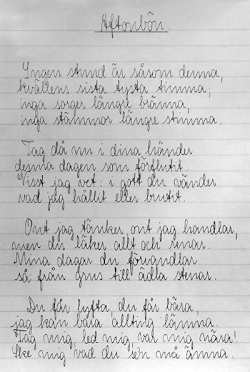 Aftonbön.
Ingen stund är såsom denna,
kvällens sista tysta timma,
inga sorger längre bränna,
inga stämmor längre stimma.
Tag då nu i dina händer
denna dagen som förflutit.
Visst jag vet: i gott du vänder
vad jag hållit eller brutit.
Ont jag tänker, ont jag handlar,
men du läker allt och renar.
Mina dagar du förvandlar
så från grus till ädla stenar.
Du får lyfta, du får bära,
jag kan bara allting lämna.
Tag mig, led mig, var mig nära!
Ske mig vad du sen må ämna.